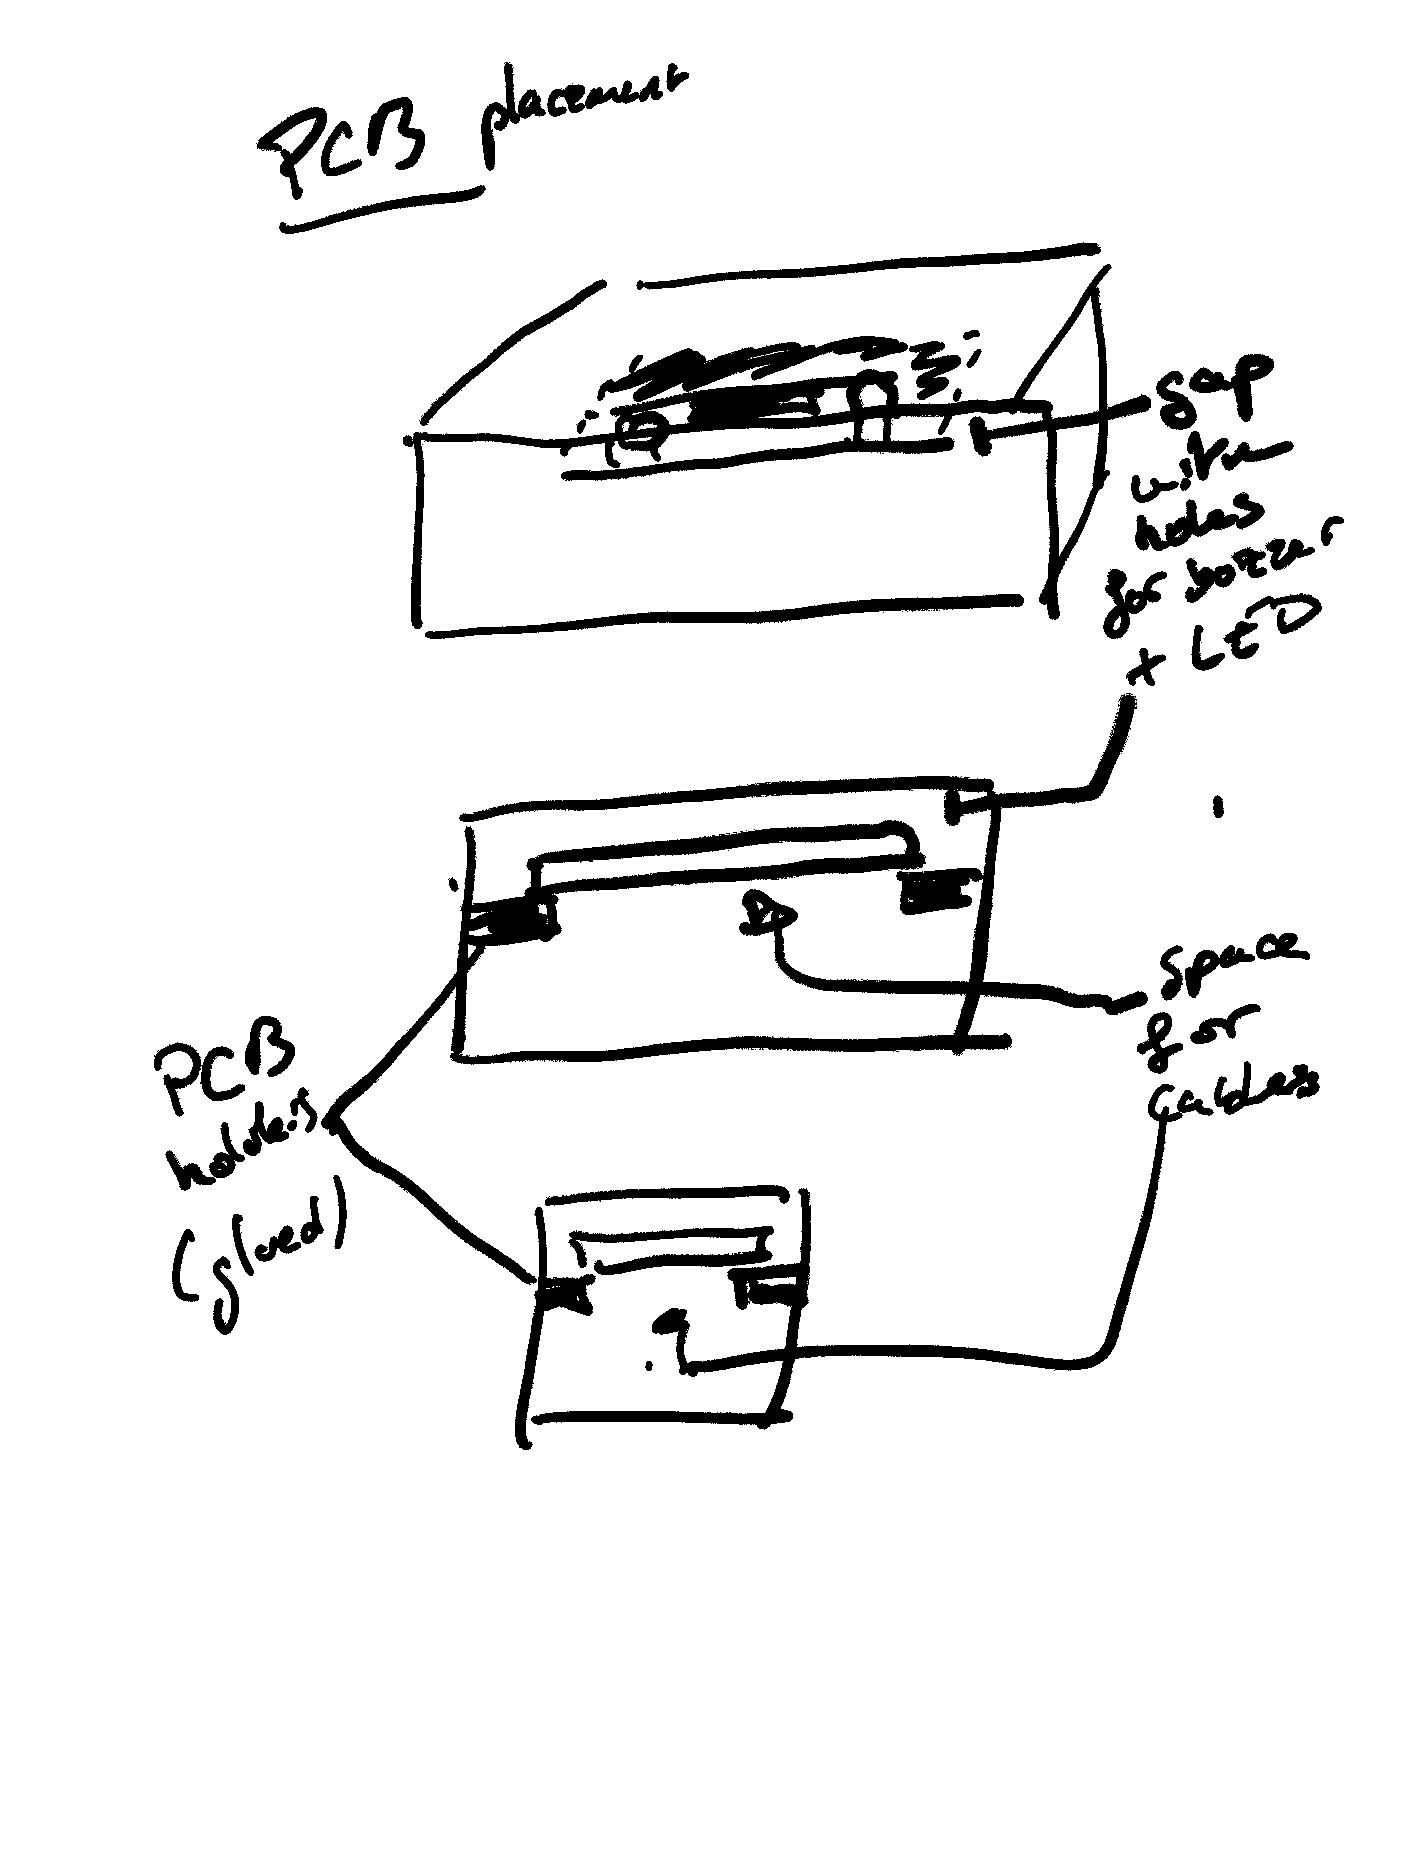 PCB placement
gap
with
holes
for bozzer
+ LED
space
for
cables
PCB
holders
(glued)